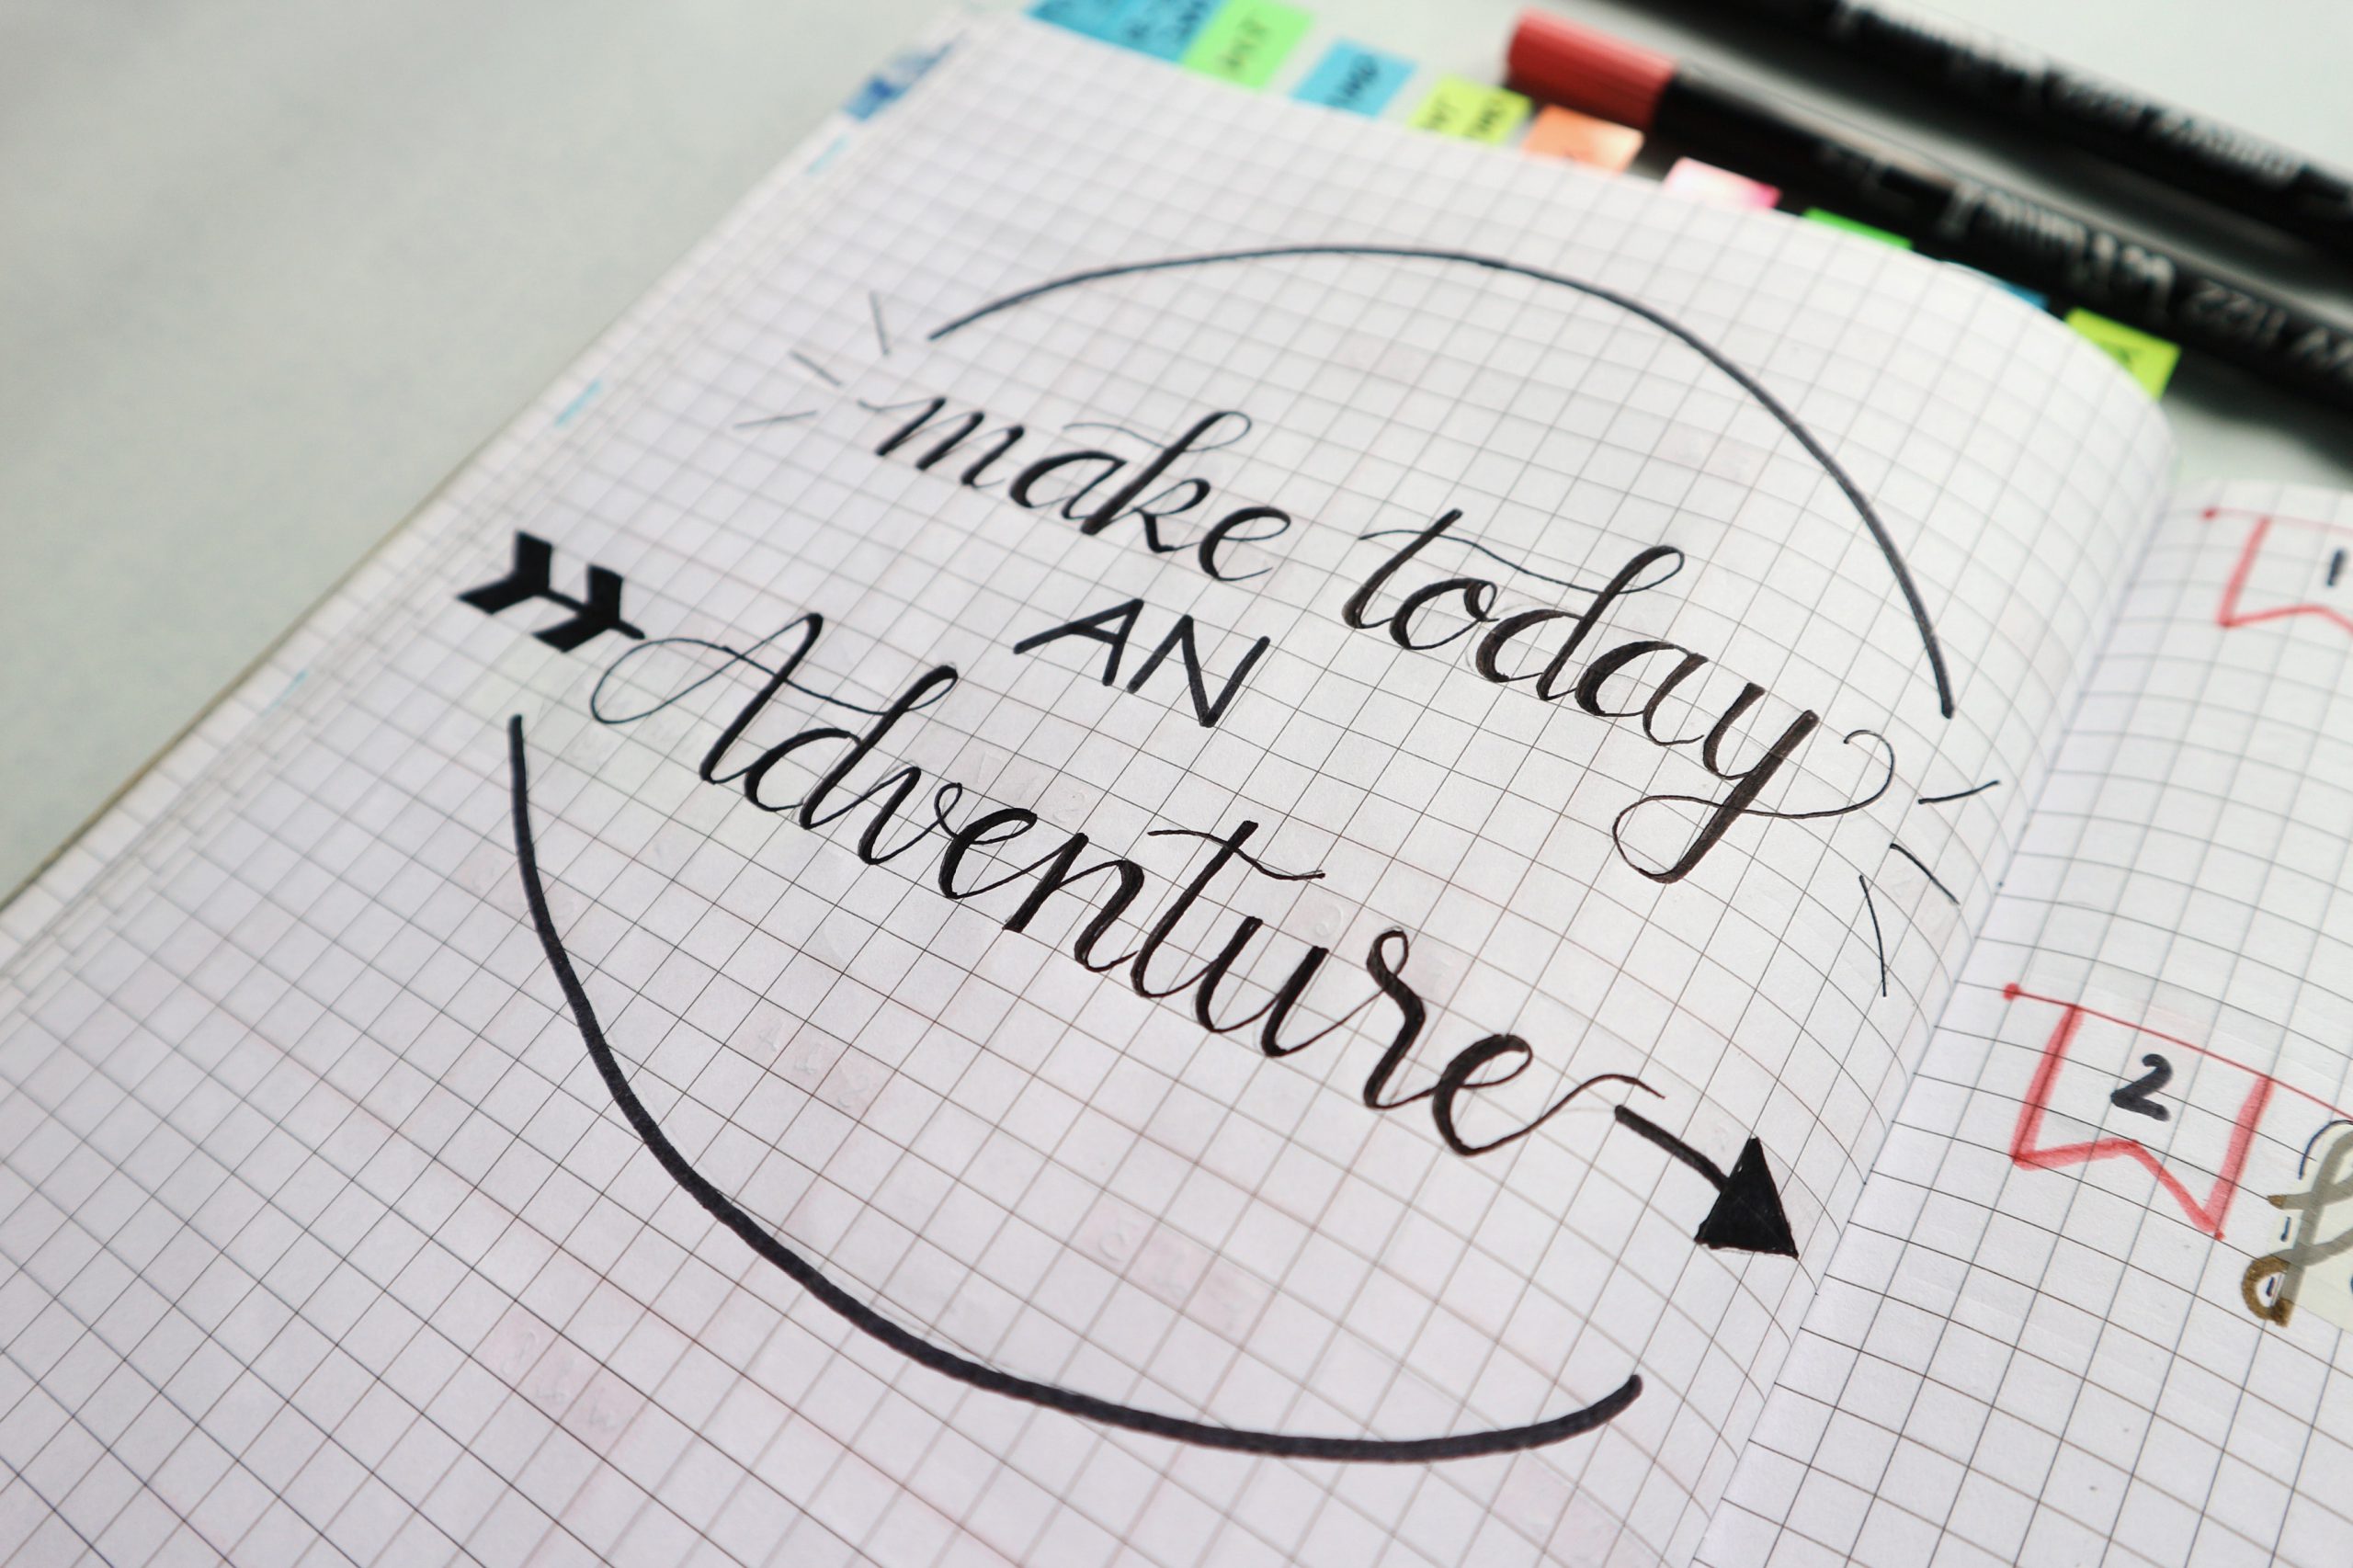 make today
AN
Adventure
1
2